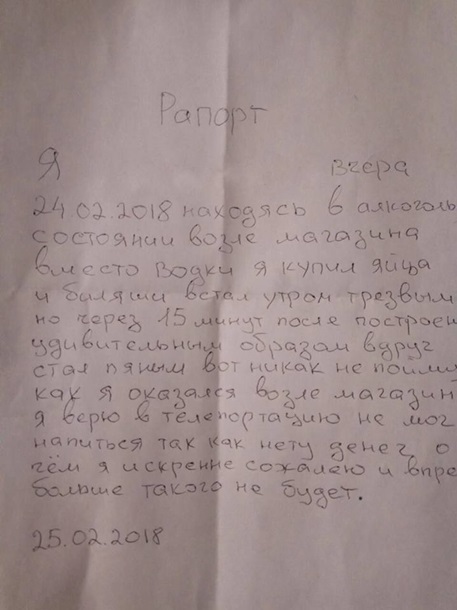 Рапорт
Я вчера
24.02.2018 находясь в алкоголь
состоянии возле магазина
вместо Водки я купил яйца
и баляши встал утром трезвым
но через 15 минут после построен
удивительным образом вдруг
стал пяным вот никак не пойму
как я оказался возле магазин
я верю в телепортацию не мог
напиться так как нету денег о
чём я искренне сожалею и впре
больше такого не будет.
25.02.2018